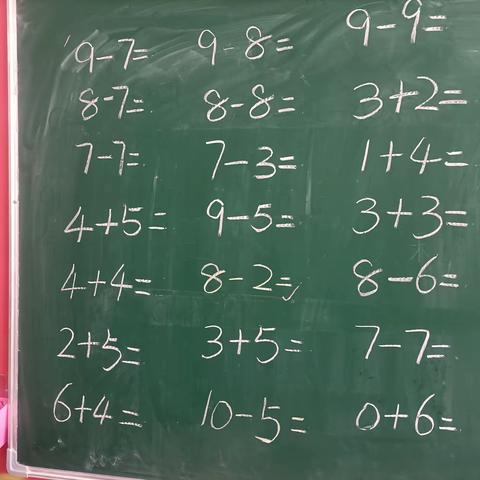 9-7= 9-8= 9-9=
8-7= 8-8= 3+2=
7-7= 7-3= 1+4=
4+5= 9-5= 3+3=
4+4= 8-2= 8-6=
2+5= 3+5= 7-7=
6+4= 10-5= 0+6=